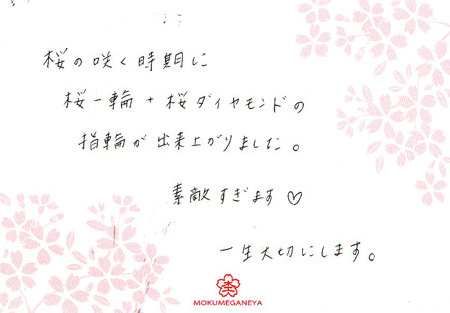 桜の咲く時期に
桜一輪+桜ダイヤモンドの
指輪が出来上がりました。
素敵すぎます♡
一生大切にします。
MOKUMEGANEYA